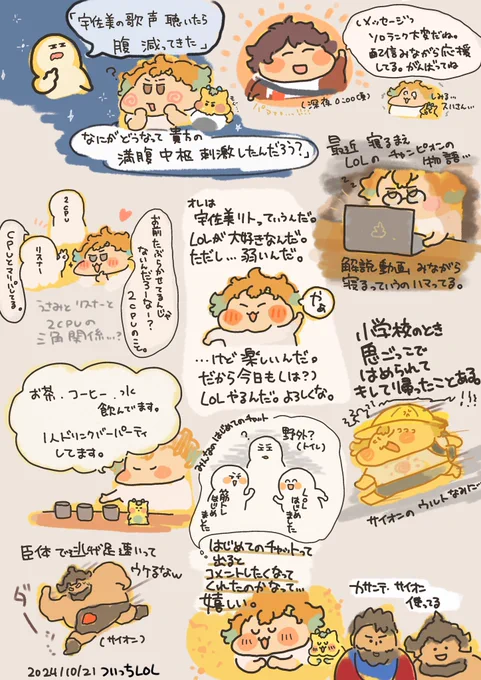 「宇佐美の歌声 聴いたら
腹 減ってきた」
なにがどうなって 貴方の
満腹 中枢 刺激したんだろう?」
(メッセージ)
ソロランク大変だね。
配信みながら応援
してる。がんばってね
しみる…
スハさん…
最近 寝るまえ
LoLの チャンピオンの
物語…
解説動画 みながら
寝まっていうのハマってる。
2CPU
リスナー
CPUとマリーしてる。
お前たぶらかせてるんじゃ
ないんだろーなー?
2CPUのこと。
うさみとリスナーと
2CPUの
三角関係…?
オレは
宇佐美リトっていうんだ。
LoLが大好きなんだ。
ただし…弱いんだ。
やぁ
…けど 楽しいんだ。
だから今日もしは?)
LoLやるんだ。よろしくな。
小学校のとき
鬼ごっこで
はめられて
キレて帰ったことある。
!!!
サイオンのウルトなみに…
お茶・コーヒー・水
飲んでます。
1人ドリンクバーパーティ
してます。
みんなのはじめてのチャット
野外?
(トイレ)
筋トレ
はじめました
LoL
はじめました
はじめてのチャットって
出ると
コメントしたくなって
くれたのかなって…
嬉しい。
巨体で乳が足速いって
ウケるなw
ダー
(サイオン)
カサンテ・サイオン
使ってる
2024/10/21 ついっちLOL